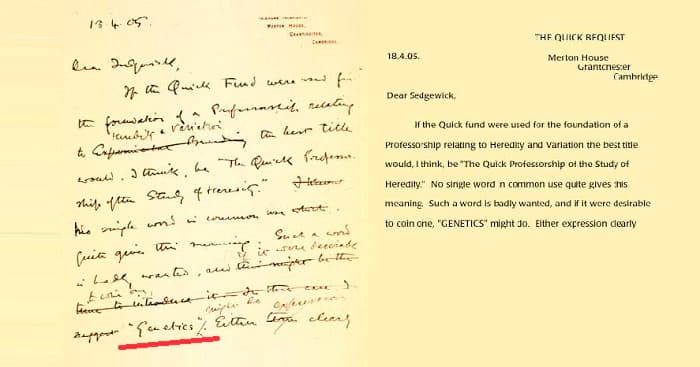 18.4.05.
MERTON HOUSE,
GRANTCHESTER,
CAMBRIDGE.
Dear Sedgewick,
If the Quick Fund were used for
the foundation of a Professorship relating
Heredity & Variation
to Experimental Breeding the best title
would, I think, be "The Quick Professor-
ship of the Study of Heredity."
No single word in common use
quite gives this meaning. Such a word
if it were desirable
is badly wanted, and this might be the
to coin one,
time to introduce it. In that case I
might do expression
suggest "Genetics". Either term clearly
THE QUICK BEQUEST
18.4.05.
Merton House
Grantchester
Cambridge
Dear Sedgewick,
If the Quick fund were used for the foundation of a
Professorship relating to Heredity and Variation the best title
would, I think, be "The Quick Professorship of the Study of
Heredity." No single word in common use quite gives this
meaning. Such a word is badly wanted, and if it were desirable
to coin one, "GENETICS" might do. Either expression clearly